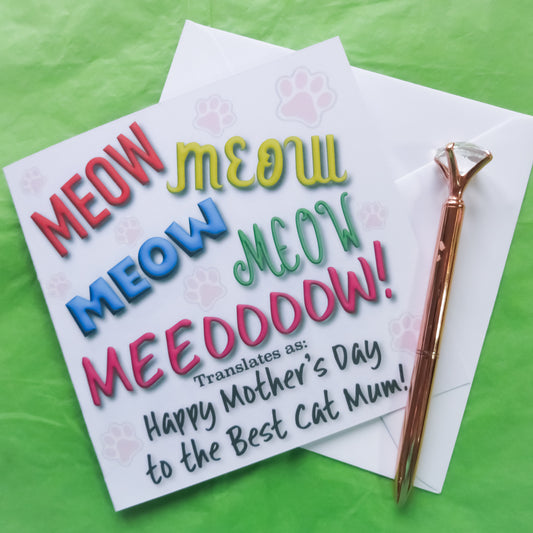 MEOW MEOW
MEOW MEOW
MEEOOOOW!
Translates as:
Happy Mother's Day
to the Best Cat Mum!